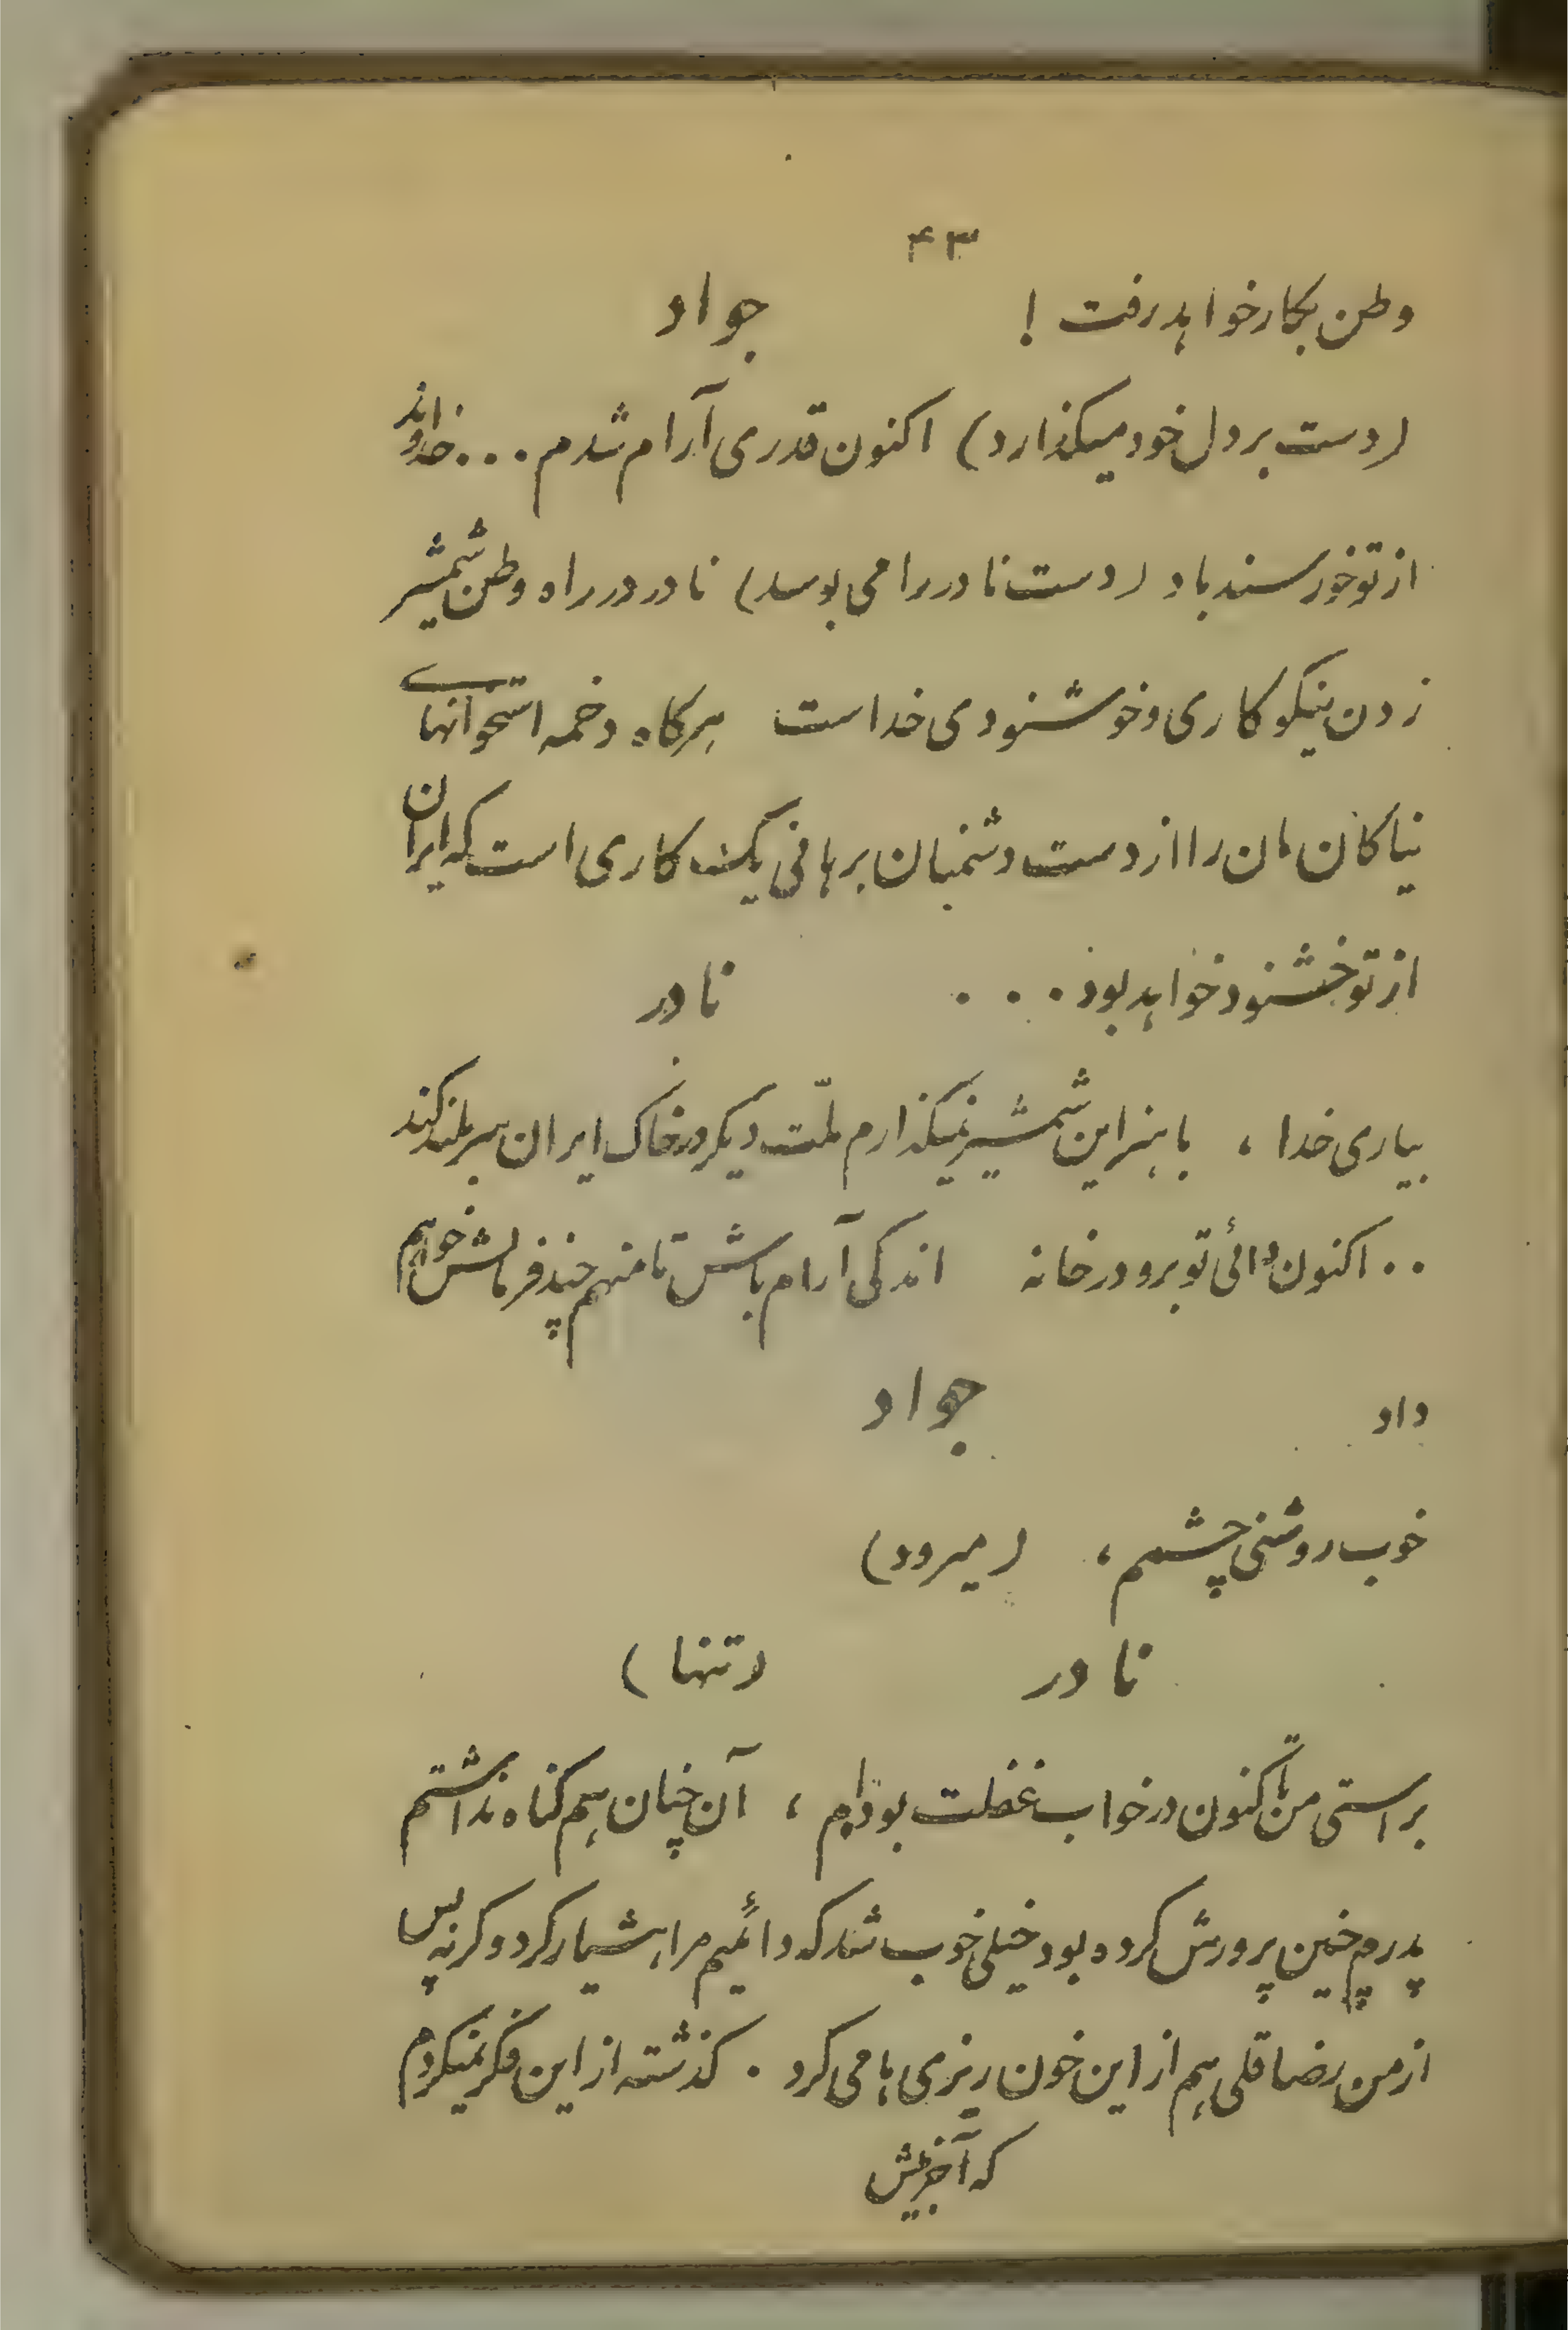 ۴۳
وطن بکار خواهد رفت ! جواد
(دست بر دل خود میکذارد) اکنون قدری آرام شدم . . . خداوند
از تو خورسند باد (دست نادر را می بوسد) نادر در راه وطن شمشیر
زدن نیکو کاری و خوشنودی خداست هرکاه دخمه استخوانهای
نیاکان مان را از دست دشمنان برهانی یک کاری است که ایران
از تو خشنود خواهد بود . . . نادر
بیاری خدا ، با هنر این شمشیر نمیکذارم ملّت دیکر در خاک ایران سر بلند کند
. . اکنون دائی تو برو در خانه اندکی آرام باش تا منهم چند فرمایش خواهم
داد جواد
خوب روشنی چشمم ، (میرود)
نادر (تنها)
براستی من تاکنون در خواب غفلت بوده‌ام ، آن چنان هم کناه نداشتم
پدرم چنین پرورش کرده بود خیلی خوب شد که دائیم مرا هشیار کرد و کرنه پس
از من رضا قلی هم از این خون ریزی ها می کرد . کذشته از این فکر نمیکردم
که آخرش